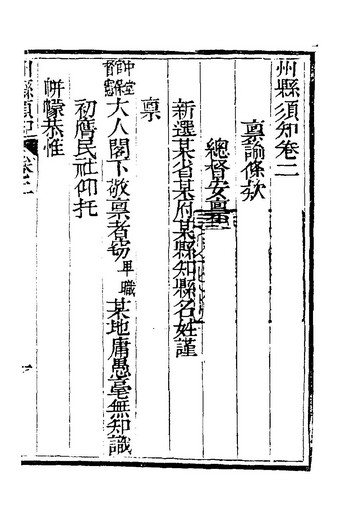 州縣須知卷二
稟諭條欵
總督安稟
新選某省某府某縣知縣名姓謹
稟
大人閣下敬稟者竊卑職某地庸愚毫無知識
初膺民社仰托
帡幪恭惟
州縣須知 卷二